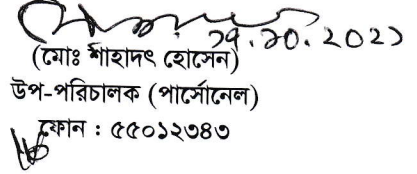 ১৭.১০.২০২১
(মোঃ শাহাদৎ হোসেন)
উপ-পরিচালক (পার্সোনেল)
ফোন : ৫৫০১২৩৪৩